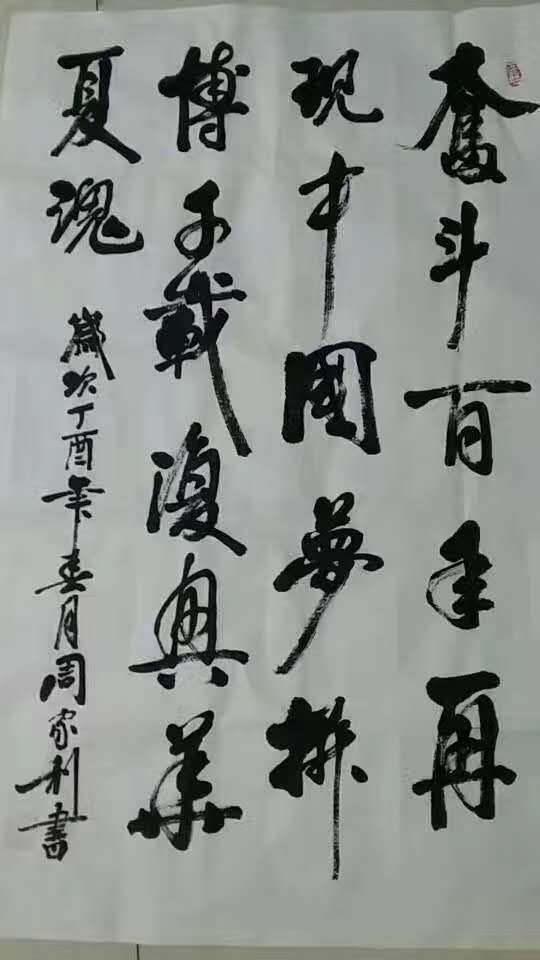 奮斗百年再
現中國夢拚
博千載復興華
夏魂
歲次丁酉年春月周家利書